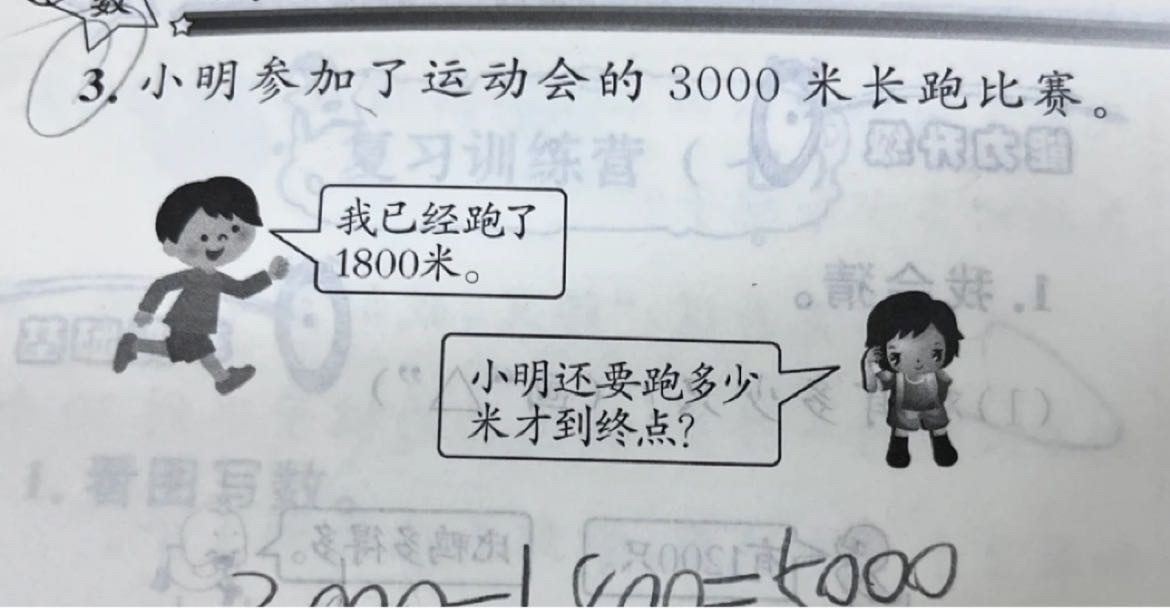 数
3. 小明参加了运动会的 3000 米长跑比赛。
我已经跑了
1800米。
小明还要跑多少
米才到终点?